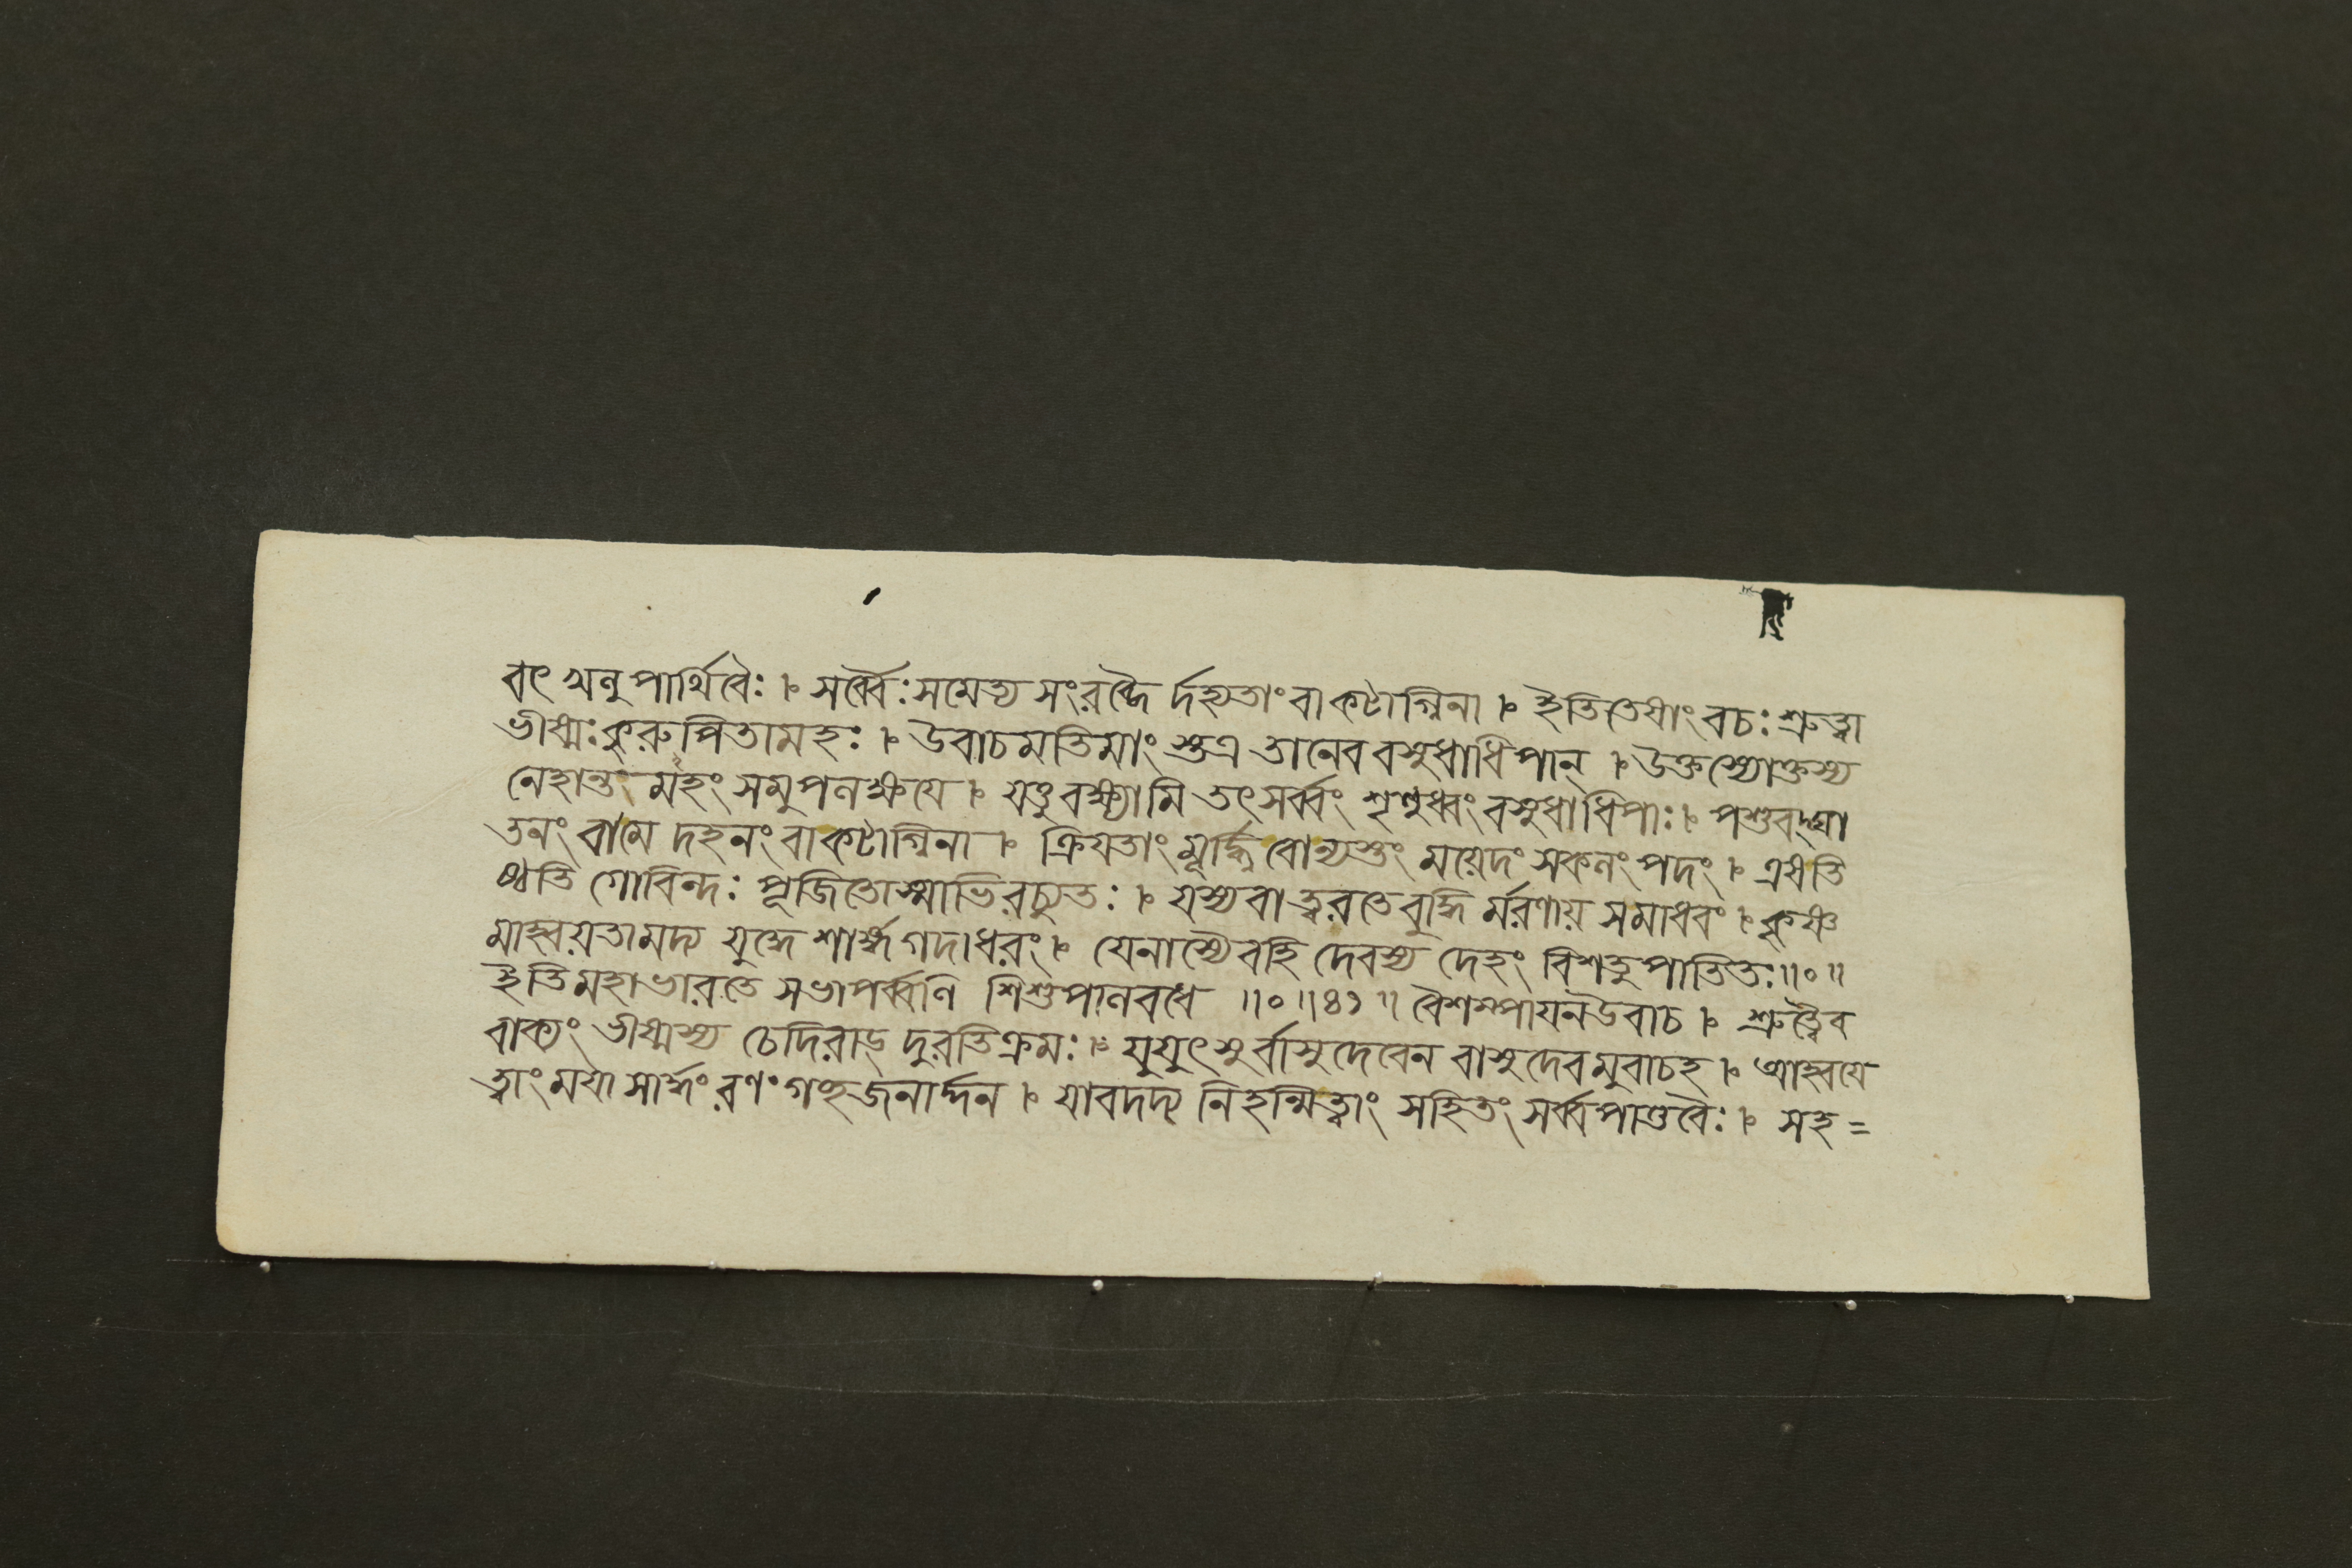 বৎ খনু পার্থিবৈঃ ৷ সর্ব্বৈঃ সমেত্য সংরব্ধৈ র্দহ্যতাং বা কটাগ্নিনা ৷ ইতি তেষাং বচঃ শ্রুত্বা
ভীষ্মঃ কুরু পিতামহঃ ৷ উবাচ মতিমাং স্তত্র তানেব বসুধাধিপান্ ৷ উক্তস্যোক্তস্য
নেহান্ত মহং সমুপলক্ষয়ে ৷ যত্তু বক্ষ্যামি তৎ সর্ব্বং শৃণুধ্বং বসুধাধিপাঃ ৷ পশুবদ্ঘা
তনং বা মে দহনং বা কটাগ্নিনা ৷ ক্রিয়তাং মূর্দ্ধ্নি বোন্যস্তং ময়েদং সকলং পদং ৷ এষ তি
ষ্ঠতি গোবিন্দঃ পূজিতোস্মাভিরচ্যুতঃ ৷ যস্য বা ত্বরতে বুদ্ধি র্মরণায় স মাধবং ৷ কৃষ্ণ
মাহ্বয়তামদ্য যুদ্ধে শার্ঙ্গ গদাধরং ৷ যেনাস্যৈব হি দেবস্য দেহং বিশতু পাতিতঃ ॥০॥
ইতি মহাভারতে সভাপর্ব্বণি শিশুপালবধে ॥০॥৪১॥ বৈশম্পায়ন উবাচ ৷ শ্রুত্বৈব
বাক্যং ভীষ্মস্য চেদিরাড্ দুরতিক্রমঃ ৷ যুযুৎসুর্বাসুদেবেন বাসুদেবমুবাচহ ৷ আহ্বয়ে
ত্বাং ময়া সার্দ্ধং রণং গচ্ছ জনার্দ্দন ৷ যাবদদ্য নিহন্মি ত্বাং সহিতং সর্ব্ব পাণ্ডবৈঃ ৷ সহ =